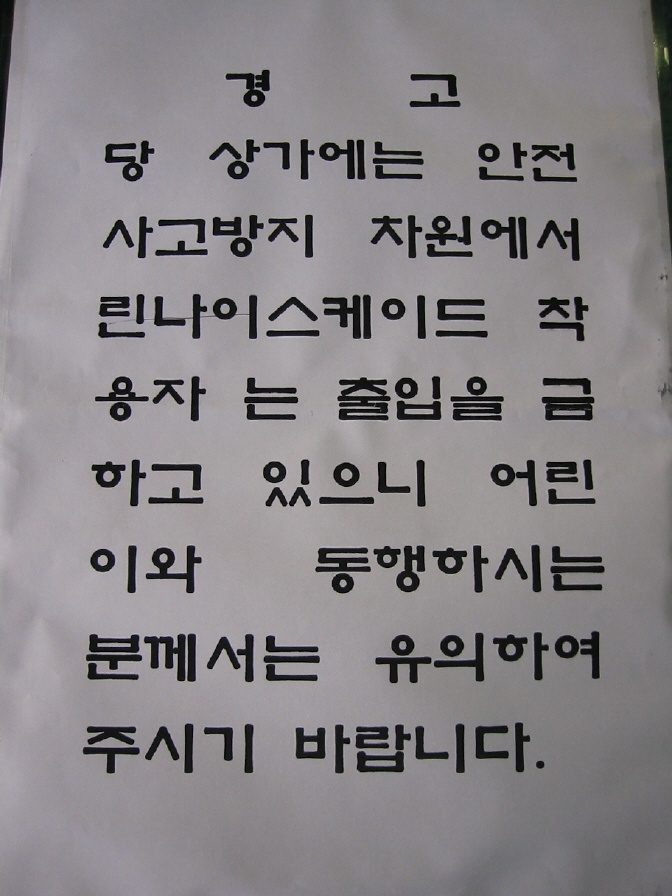 경 고
당 상가에는 안전
사고방지 차원에서
린나이스케이드 착
용자 는 출입을 금
하고 있으니 어린
이와 동행하시는
분께서는 유의하여
주시기 바랍니다.